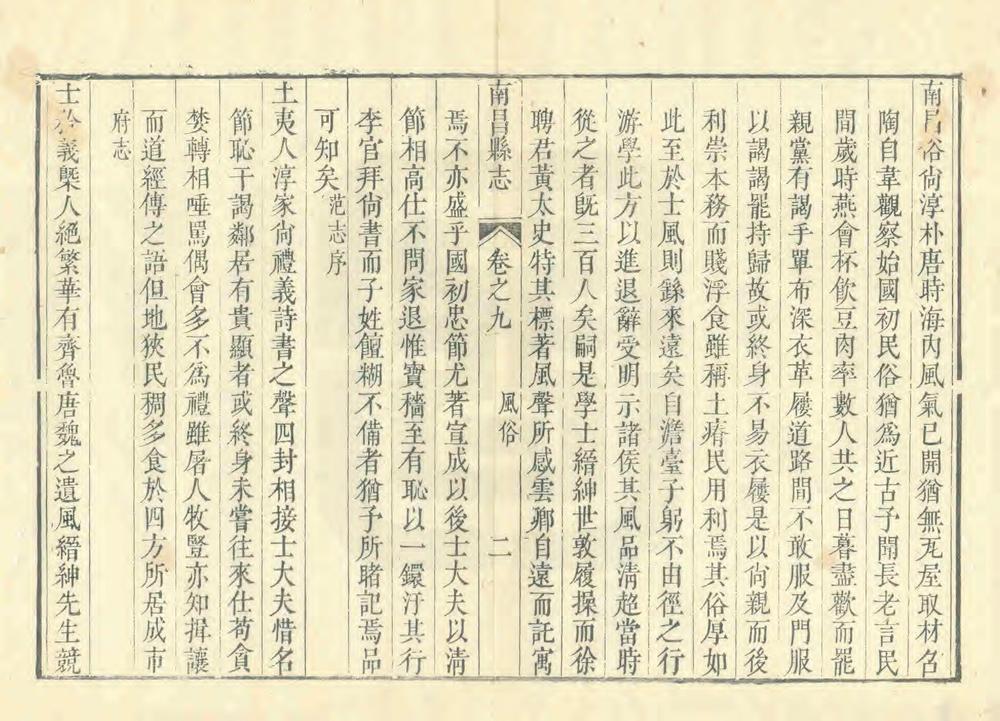 南昌俗尙淳朴唐時海內風氣已開猶無瓦屋取材名
陶自韋觀察始國初民俗猶爲近古予聞長老言民
間歲時燕會杯飮豆肉率數人共之日暮盡歡而罷
親黨有謁手單布深衣革屨道路間不敢服及門服
以謁謁罷持歸故或終身不易衣屨是以尙親而後
利崇本務而賤浮食雖稱土瘠民用利焉其俗厚如
此至於士風則繇來遠矣自澹臺子躬不由徑之行
游學此方以進退辭受明示諸侯其風品淸超當時
從之者旣三百人矣嗣是學士縉紳世敦履操而徐
聘君黃太史特其標著風聲所感雲卿自遠而託寓
南昌縣志 卷之九 風俗 二
焉不亦盛乎國初忠節尤著宣成以後士大夫以淸
節相高仕不問家退惟實穡至有恥以一鐶汙其行
李官拜尙書而子姓饘糊不備者猶予所睹記焉品
可知矣 范志序
士夷人淳家尙禮義詩書之聲四封相接士大夫惜名
節恥干謁鄰居有貴顯者或終身未嘗往來仕苟貪
婪轉相唾駡偶會多不爲禮雖屠人牧豎亦知揖讓
而道經傳之語但地狹民稠多食於四方所居成市
府志
士矜義槩人絕繁華有齊魯唐魏之遺風縉紳先生競